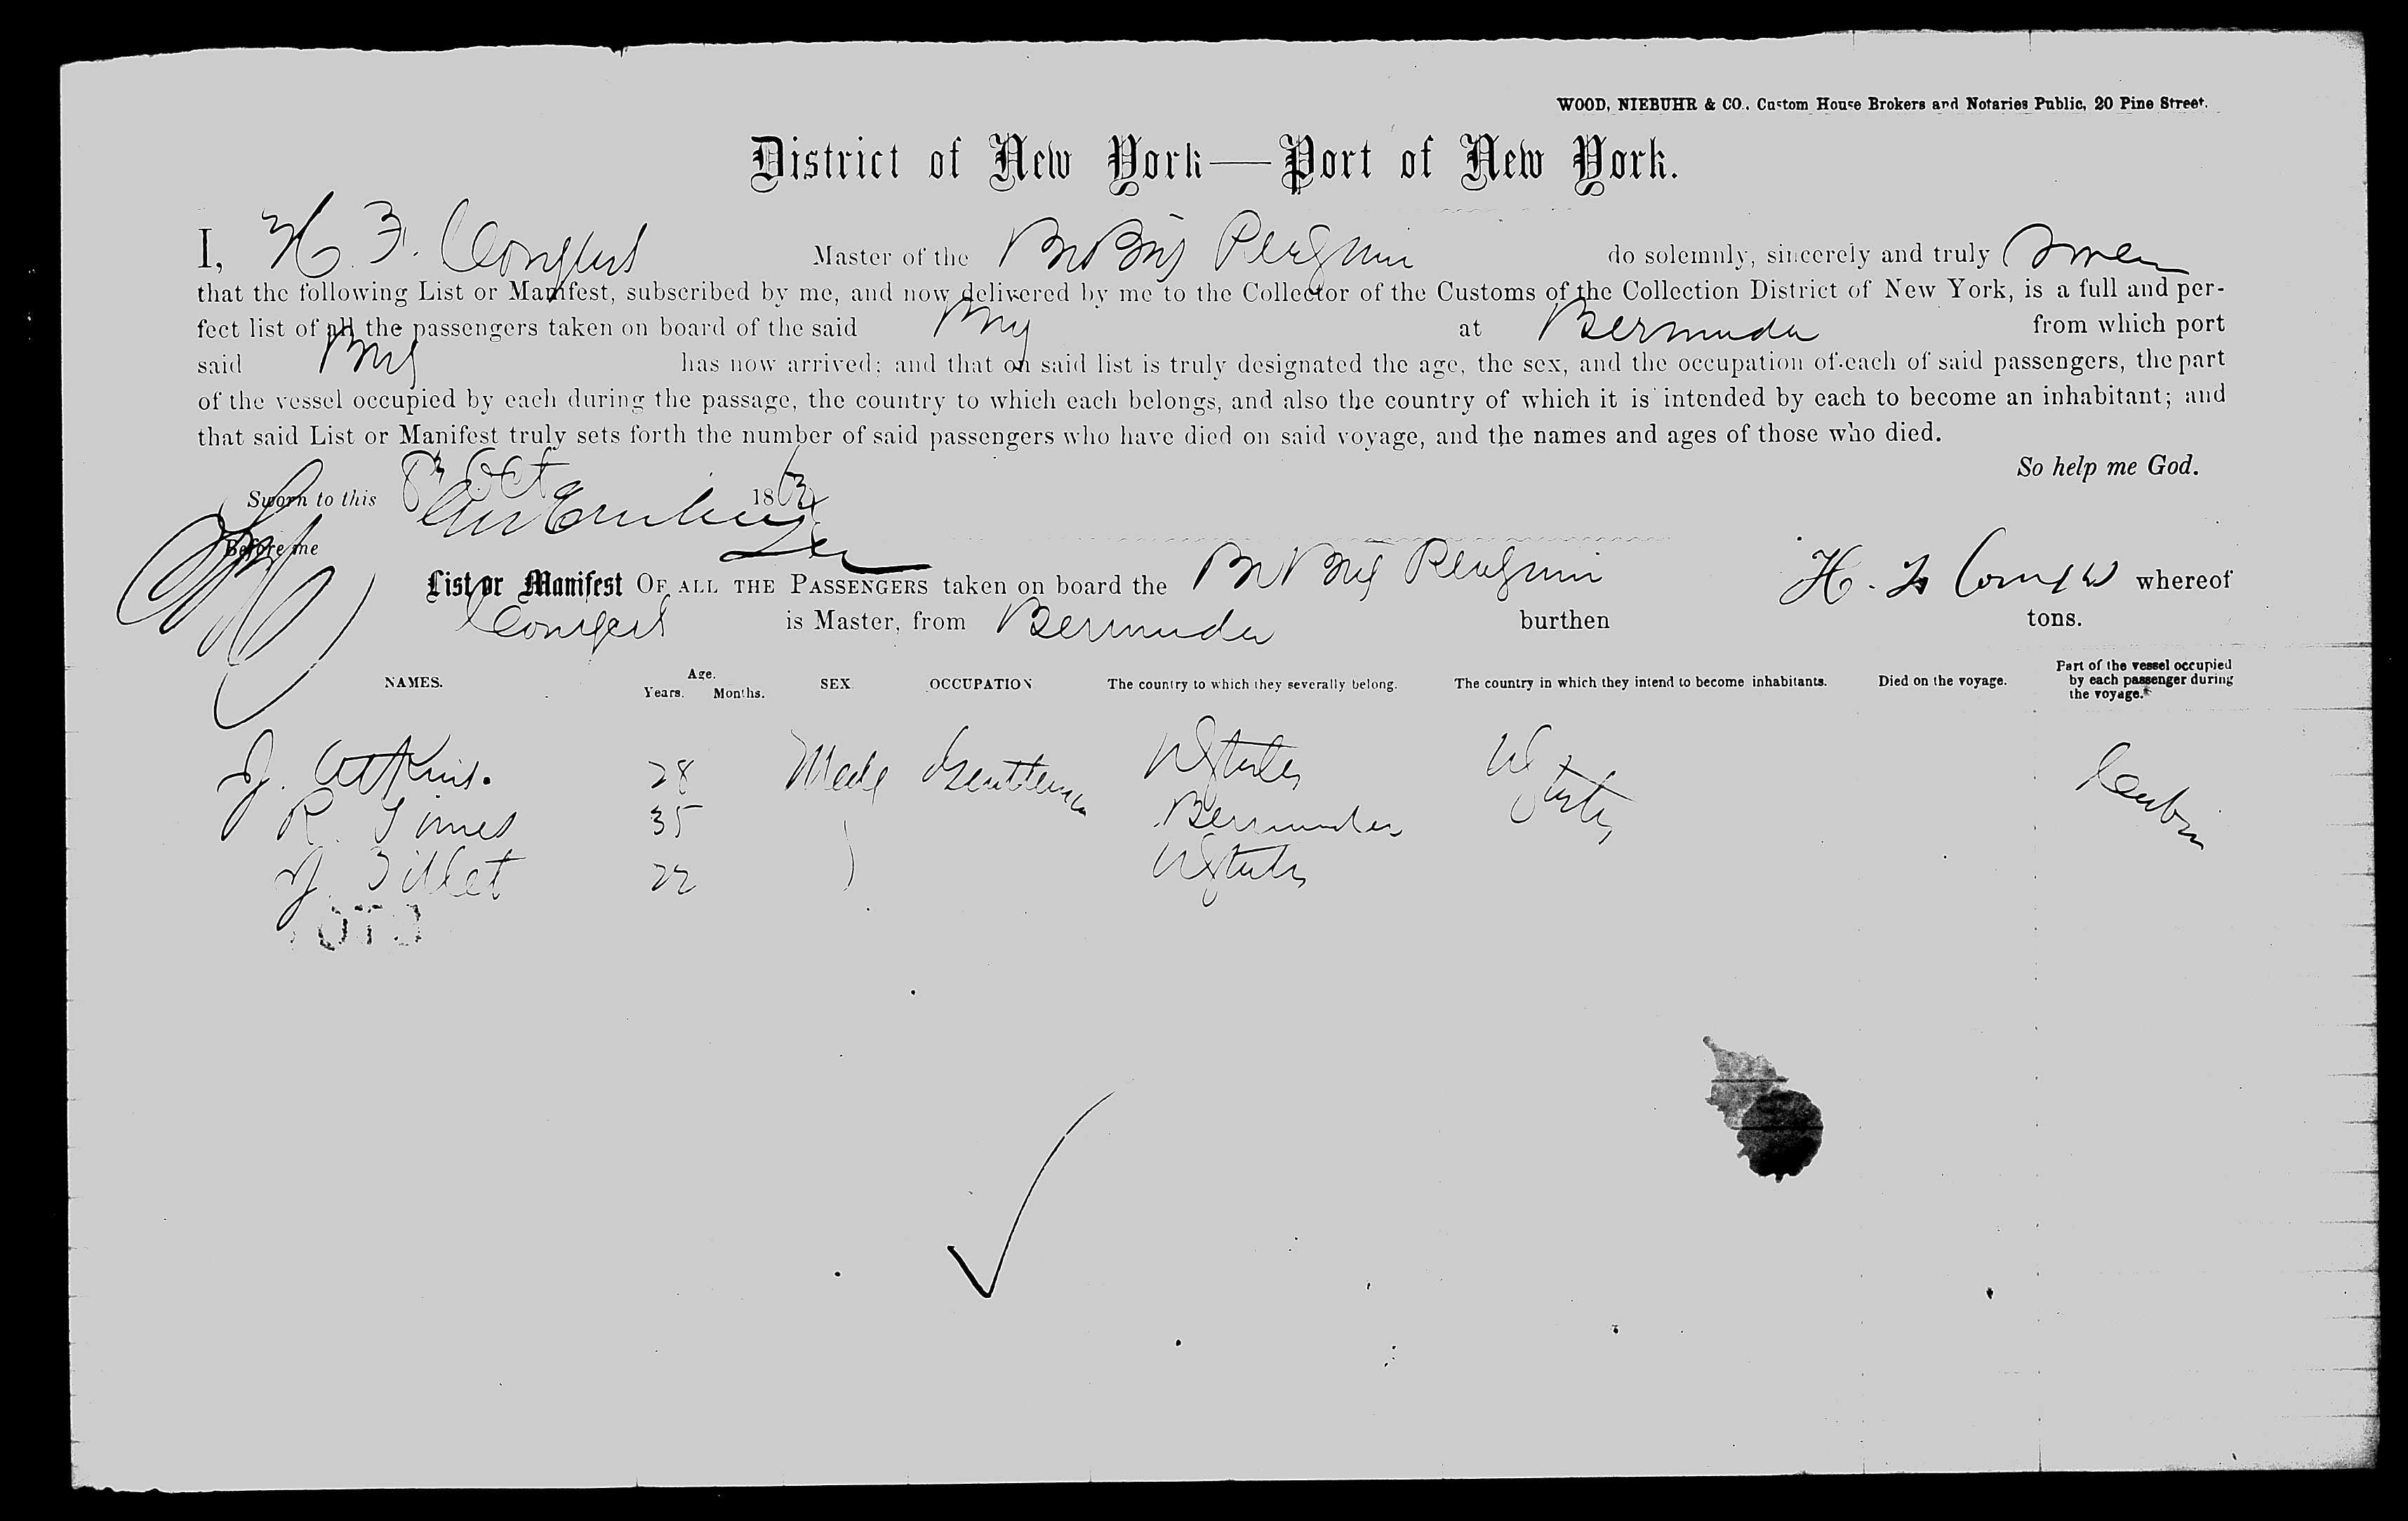 WOOD, NIEBUHR & CO., Custom House Brokers and Notaries Public, 20 Pine Street.
District of New York—Port of New York.
I, H. F. Master of the Br Brig do solemnly, sincerely and truly swear
that the following List or Manifest, subscribed by me, and now delivered by me to the Collector of the Customs of the Collection District of New York, is a full and per-
fect list of all the passengers taken on board of the said Brig at Bermuda from which port
said Brig has now arrived; and that on said list is truly designated the age, the sex, and the occupation of each of said passengers, the part
of the vessel occupied by each during the passage, the country to which each belongs, and also the country of which it is intended by each to become an inhabitant; and
that said List or Manifest truly sets forth the number of said passengers who have died on said voyage, and the names and ages of those who died.
So help me God.
Sworn to this 8th Oct 1863
Before me
List or Manifest OF ALL THE PASSENGERS taken on board the Br Brig whereof
is Master, from Bermuda burthen tons.
NAMES. Age. Years. Months. SEX OCCUPATION The country to which they severally belong. The country in which they intend to become inhabitants. Died on the voyage. Part of the vessel occupied by each passenger during the voyage.*
J. Atkins. 28 Male Gentleman UStates UStates Cabin
R. 35 Bermuda
J. 22 UStates